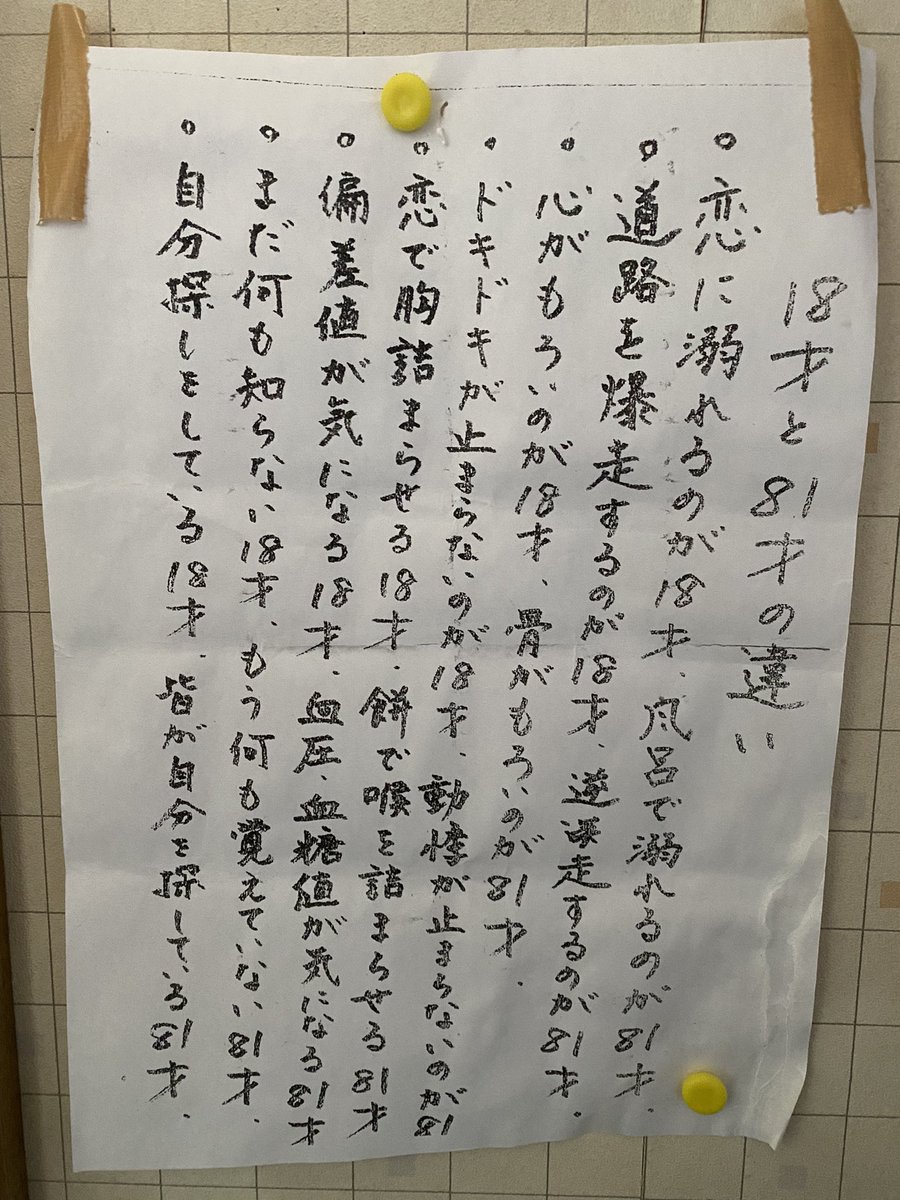 18才と81才の違い
。恋に溺れるのが18才、風呂で溺れるのが81才.
。道路を爆走するのが18才、逆走するのが81才.
。心がもろいのが18才、骨がもろいのが81才.
。ドキドキが止まらないのが18才、動悸が止まらないのが81
。恋で胸詰まらせる18才.餅で喉を詰まらせる81才
。偏差値が気になる18才.血圧、血糖値が気になる81才
。まだ何も知らない18才、もう何も覚えていない81才.
。自分探しをしている18才.皆が自分を探している81才.